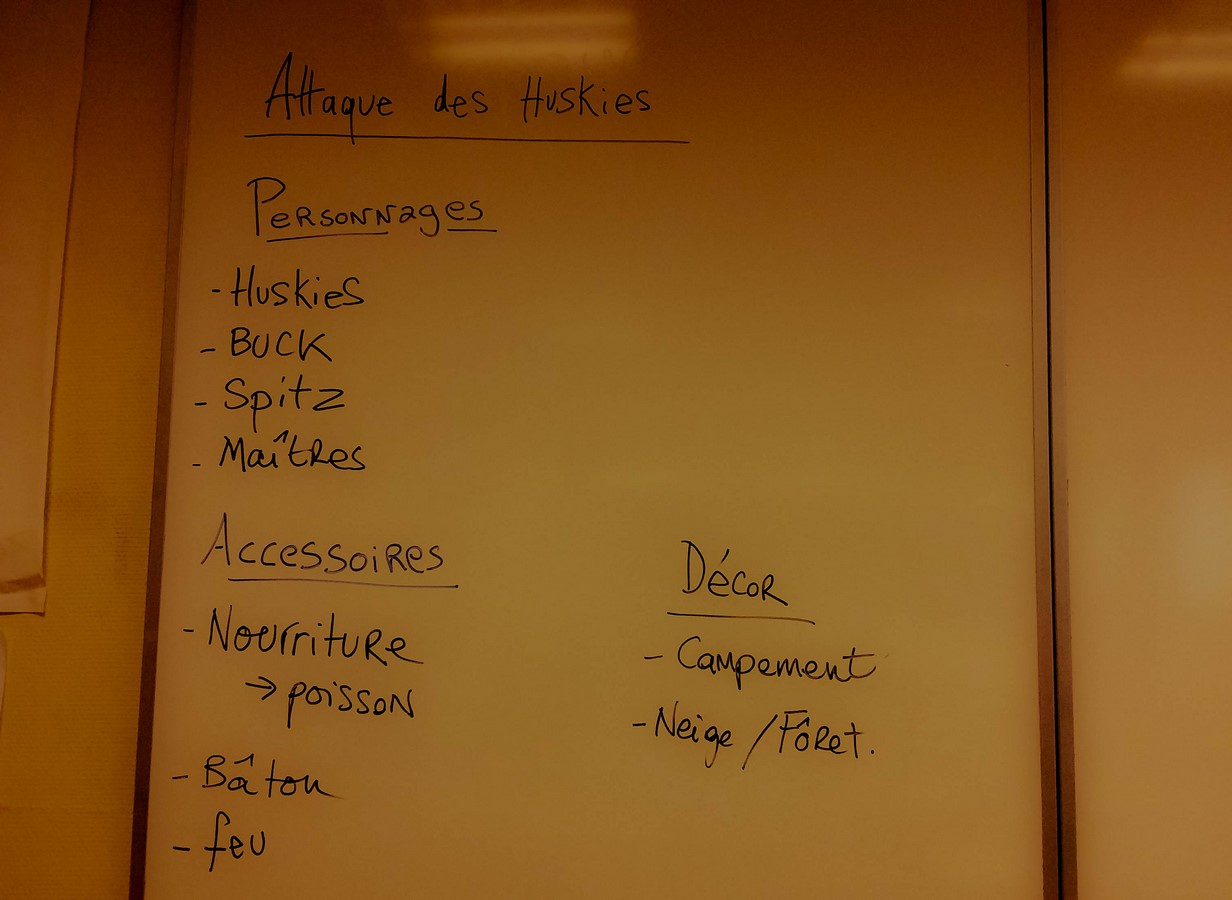 Attaque des Huskies
Personnages
- Huskies
- BUCK
- Spitz
- Maîtres
Accessoires
- Nourriture
→ poisson
- Bâton
- feu
Décor
- Campement
- Neige / Fôret.